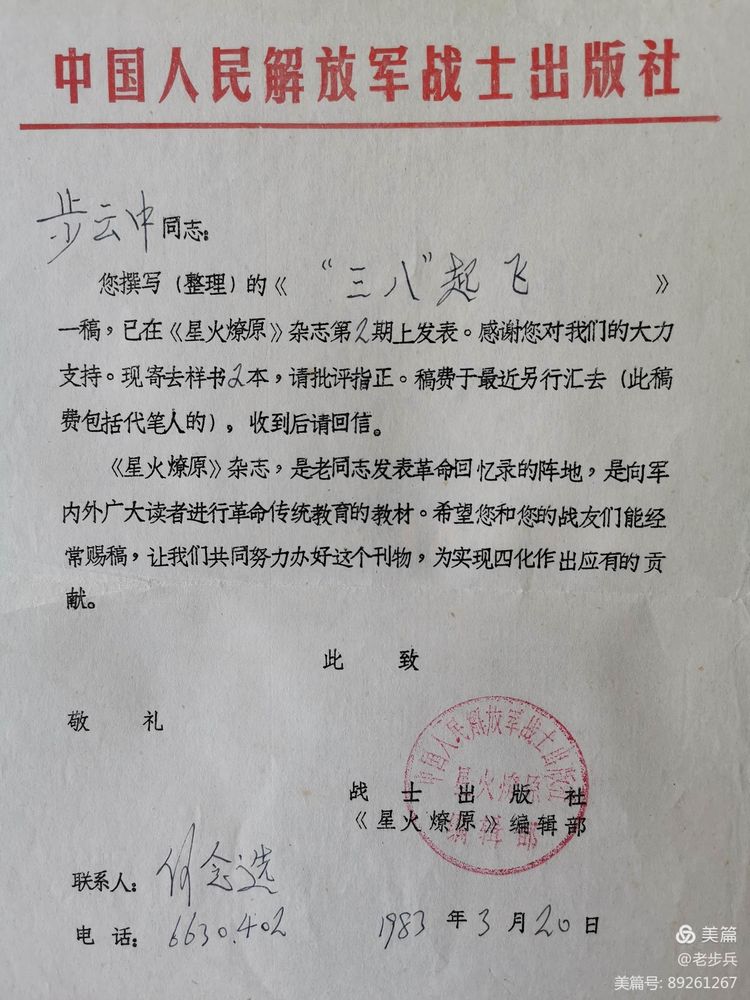 中国人民解放军战士出版社
步云中同志:
您撰写(整理)的《“三八”起飞》
一稿，已在《星火燎原》杂志第2期上发表。感谢您对我们的大力
支持。现寄去样书2本，请批评指正。稿费于最近另行汇去(此稿
费包括代笔人的)，收到后请回信。
《星火燎原》杂志，是老同志发表革命回忆录的阵地，是向军
内外广大读者进行革命传统教育的教材。希望您和您的战友们能经
常赐稿，让我们共同努力办好这个刊物，为实现四化作出应有的贡
献。
此 致
敬 礼
中国人民解放军战士出版社
星火燎原
编辑部
战士出版社
《星火燎原》编辑部
联系人: 何念选
电 话: 6630.402 1983年3月20日
美篇
@老步兵
美篇号: 89261267